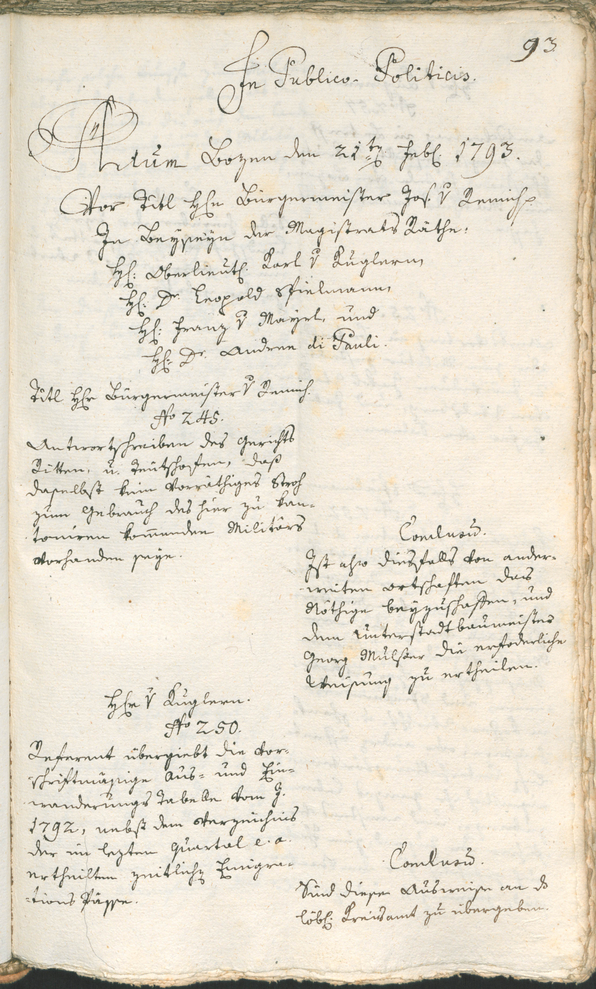 93
In Publico-Politicis.
Actum Bozen den 21ten Febr: 1793.
Vor Titl Hhn Bürgermeister Jos: v Remich
In Beyseyn der Magistrats Räthe:
Hh: Oberlieut: Karl v Kuglern,
Hh: Dr. Leopold Spielmann,
Hh: Franz v Mayrl, und
Hh: Dr. Andreas di Pauli.
Titl Hhr Bürgermeister v Remich
No 245.
Antwortschreiben des Gerichts
Ritten, u. Teutschofen, daß
daselbst kein vorräthiges Stroh
zum Gebrauch des hier zu kan-
toniren kommenden Militärs
vorhanden seye.
Conclusum.
Ist also diesfalls von ander-
weiten Ortschaften das
Nöthige beyzuschaffen, und
dem Unterstadtbaumeister
Georg Mulser die erforderliche
Weisung zu ertheilen.
Hhr v Kuglern.
No 250.
Referent übergiebt die vor-
schriftmäsige Aus- und Ein-
wanderungs Tabelle vom J.
1792, nebst dem Verzeichnis
der im lezten Quartal e. a.
ertheilten zeitlichen Emigra-
tions Pässe.
Conclusum.
Sind diesen Ausweise an das
löbl: Kreisamt zu übergeben.